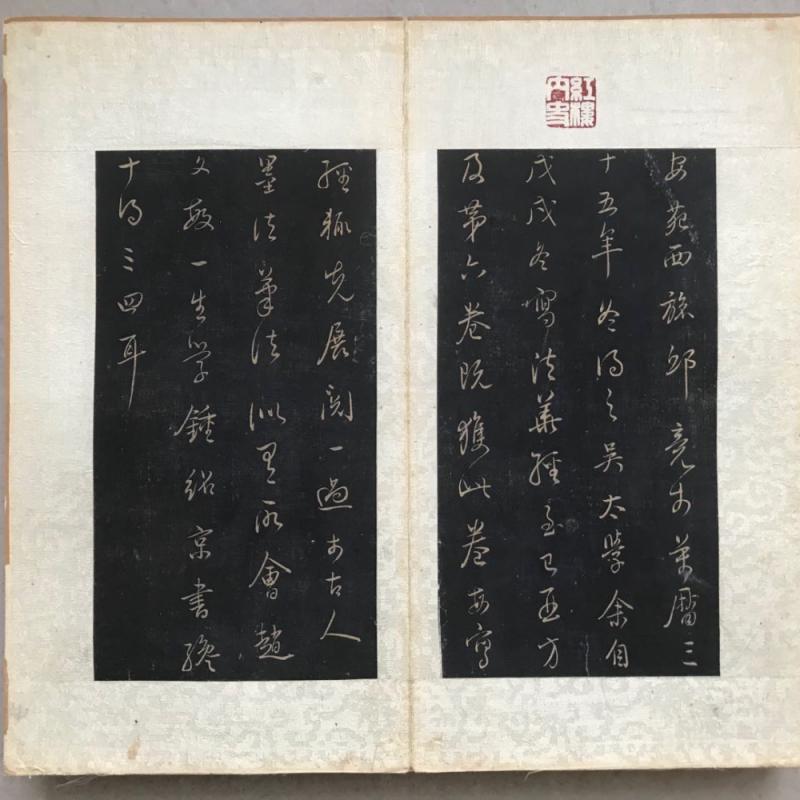 紅樓內史
安苑西旅邸竟於萬曆三
十五年冬得之吳太學余自
戊戌冬寫法華經至己亥方
及第六卷既獲此卷每寫
經輒先展閱一過於古人
墨法筆法似有所會趙
文敏一生學鍾紹京書纔
十得三四耳